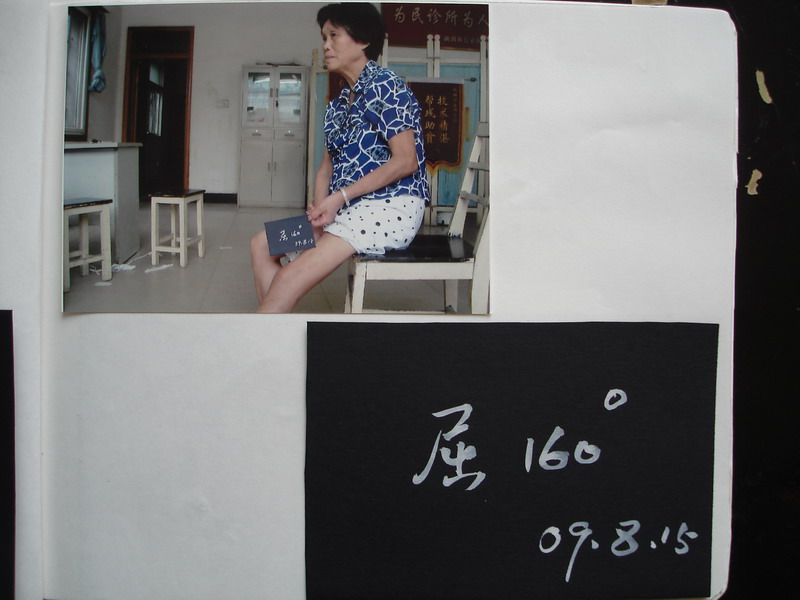 为民诊所为人
技术精湛
帮残助贫
屈 160°
09.8.15
屈 160°
09.8.15